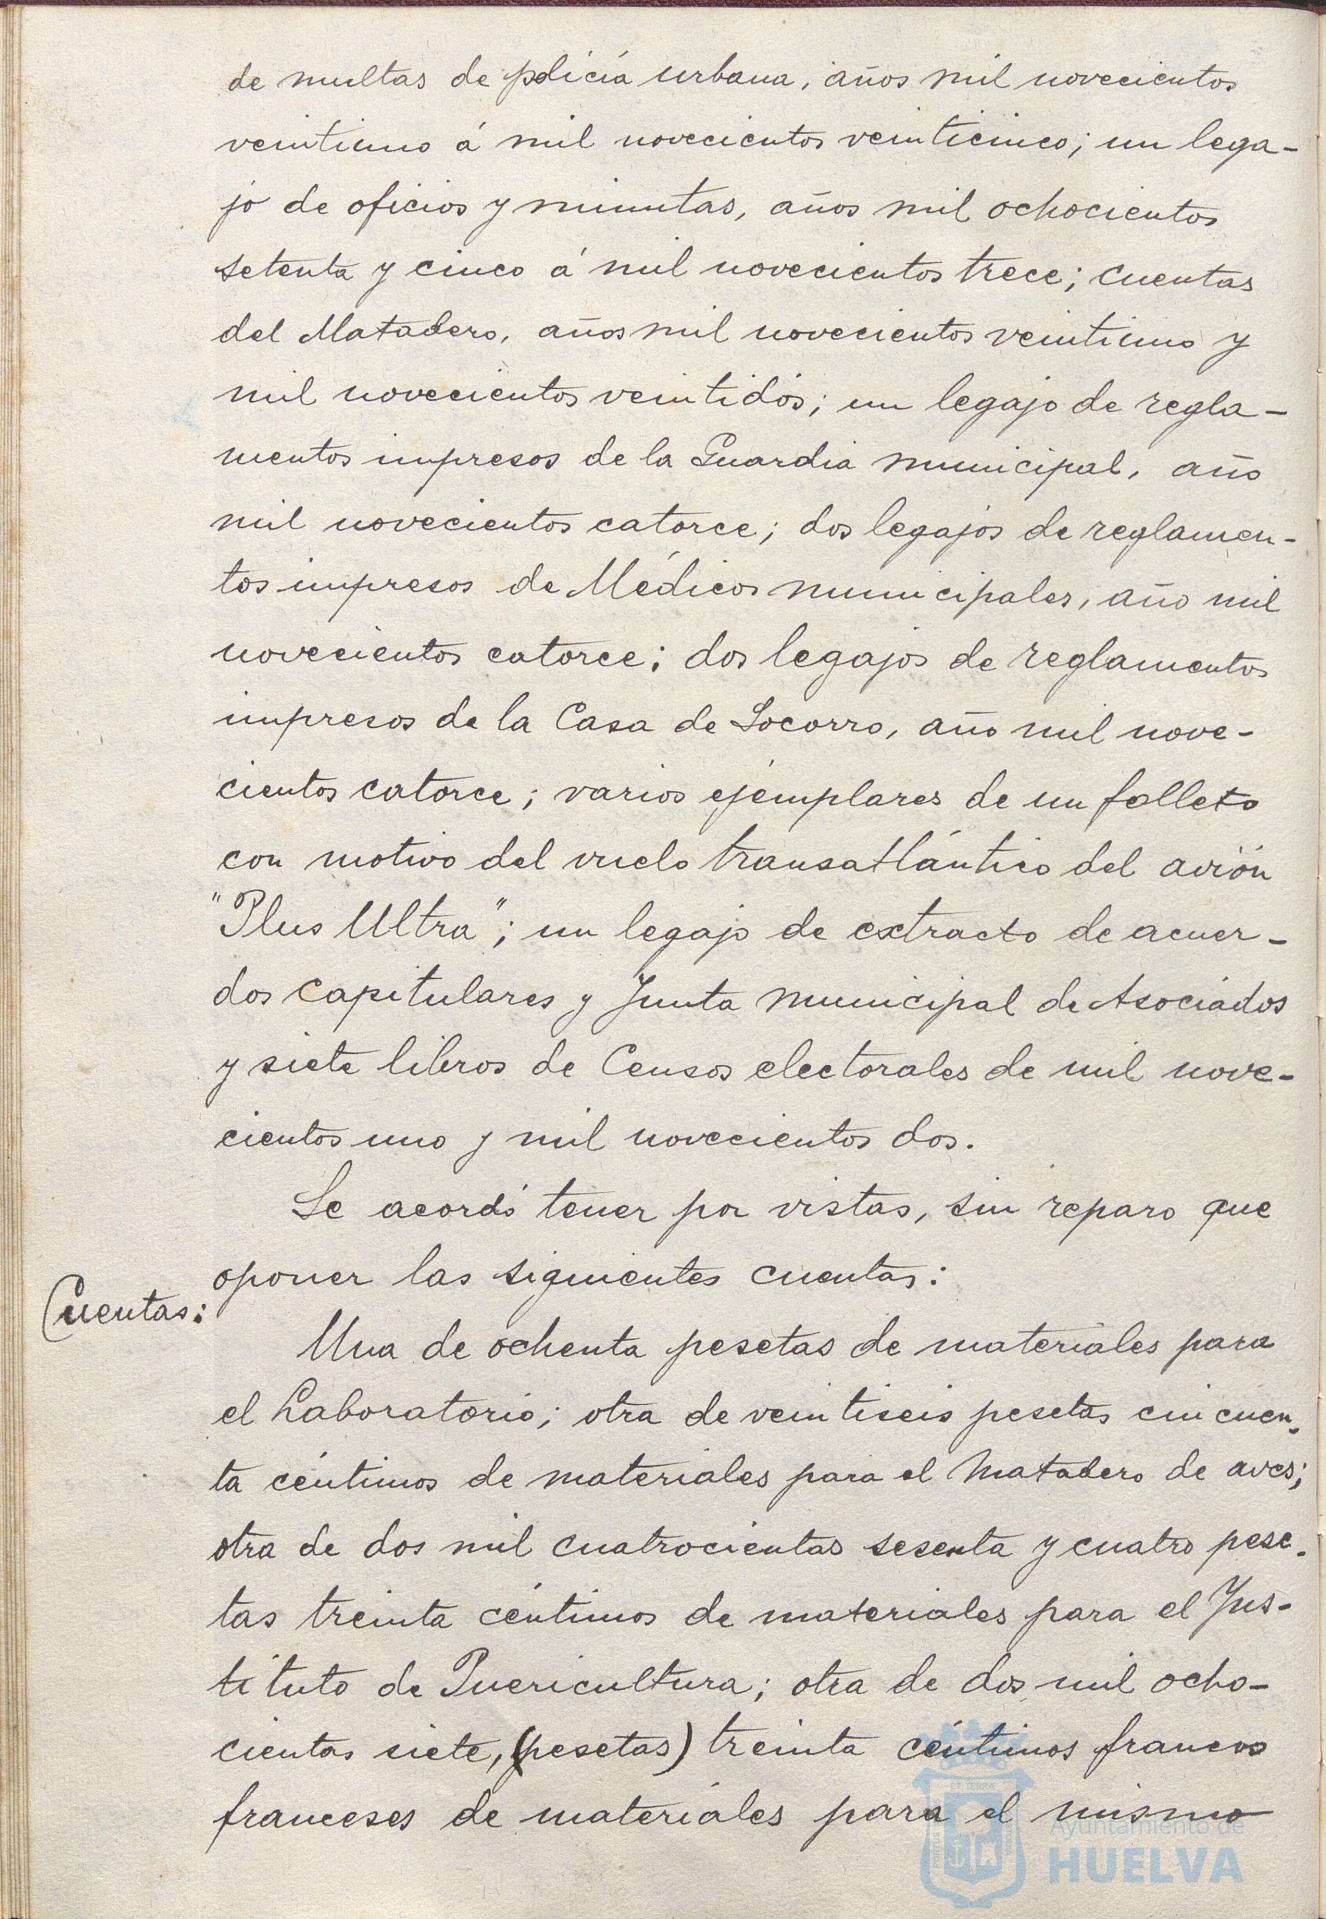 de multas de policía urbana, años mil novecientos
veintiuno á mil novecientos veinticinco; un lega-
jo de oficios y minutas, años mil ochocientos
setenta y cinco á mil novecientos trece; cuentas
del Matadero, años mil novecientos veintiuno y
mil novecientos veintidós; un legajo de regla-
mentos impresos de la Guardia municipal, año
mil novecientos catorce; dos legajos de reglamen-
tos impresos de Médicos municipales, año mil
novecientos catorce; dos legajos de reglamentos
impresos de la Casa de Socorro, año mil nove-
cientos catorce; varios ejemplares de un folleto
con motivo del vuelo transatlántico del avión
"Plus Ultra"; un legajo de extracto de acuer-
dos capitulares y Junta municipal de Asociados
y siete libros de Censos electorales de mil nove-
cientos uno y mil novecientos dos.
Se acordó tener por vistas, sin reparo que
oponer las siguientes cuentas:
Cuentas:
Una de ochenta pesetas de materiales para
el Laboratorio; otra de veintiseis pesetas cincuen-
ta céntimos de materiales para el Matadero de aves;
otra de dos mil cuatrocientas sesenta y cuatro pese-
tas treinta céntimos de materiales para el Ins-
tituto de Puericultura; otra de dos mil ocho-
cientos siete, (pesetas) treinta céntimos francos
franceses de materiales para el mismo
ET TERRA
Ayuntamiento de
HUELVA